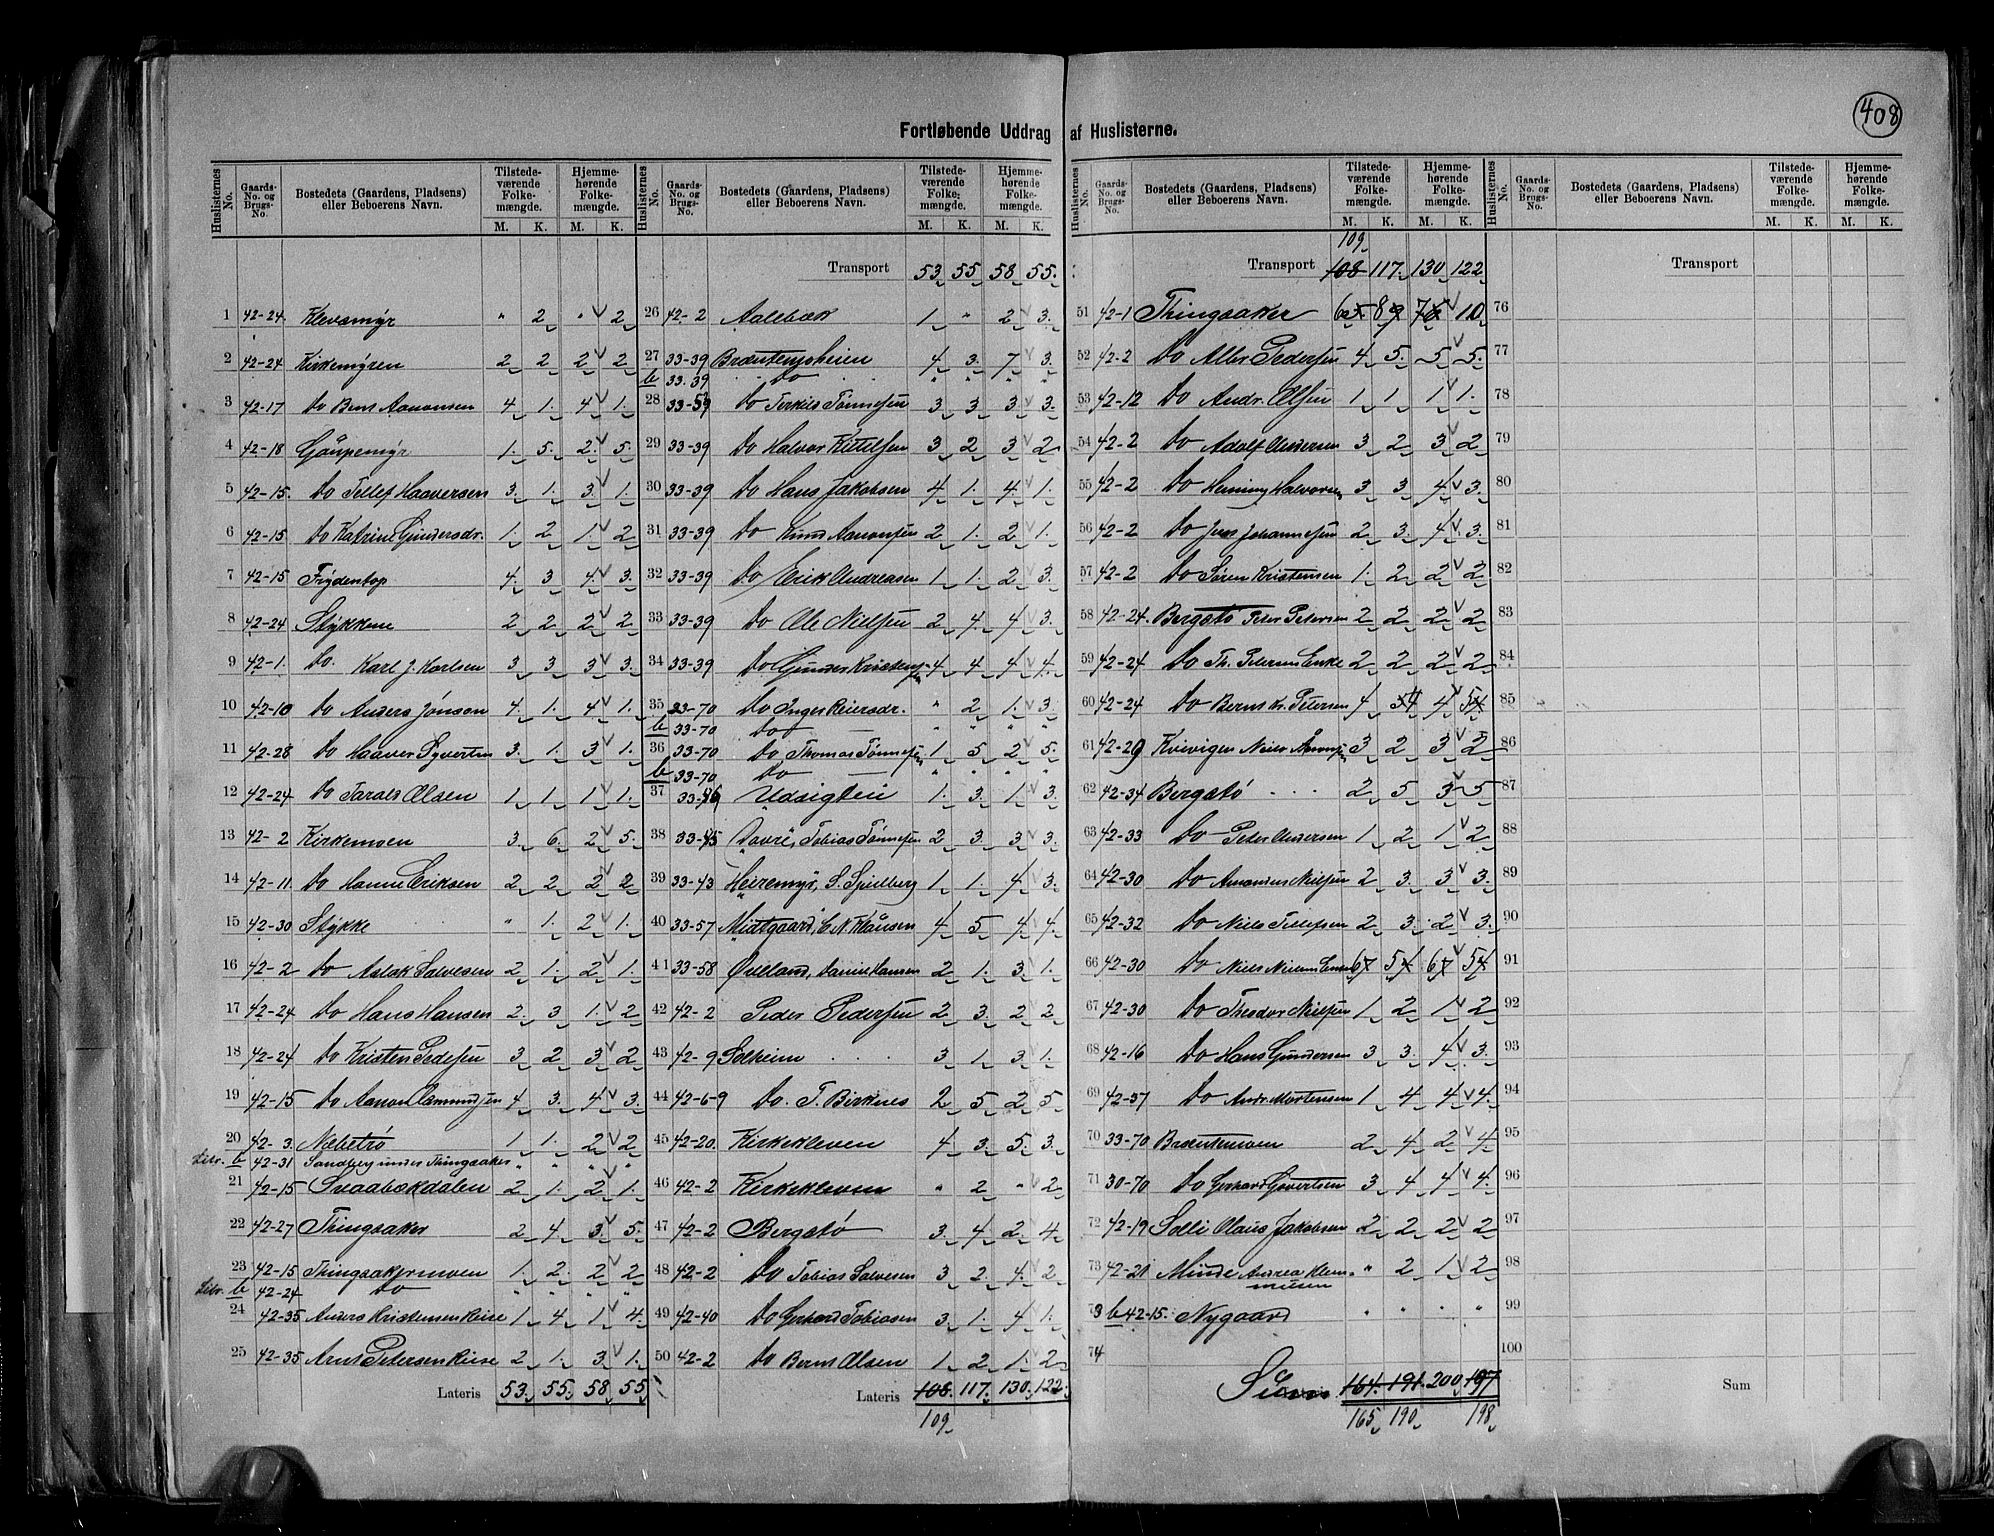 408
Fortløbende Uddrag af Huslisterne.
Huslisternes No. Gaards-No. og Brugs-No. Bostedets (Gaardens, Pladsens) eller Beboerens Navn. Tilstedeværende Folkemængde. M. K. Hjemmehørende Folkemængde. M. K.
1 42-24. Klevemyr " 2 " 2
2 42-24 Kirkemyren 2 2 2 2
3 42-17 Do Bent Aanonsen 4 1. 4 1.
4 42-18 Gaupemyr 1. 5. 2. 5
5 42-15. Do Tellef Haaversen 3. 1. 3. 1.
6 42-15 Do Katrine Gundersdr. 1. 2 1. 2
7 42-15 Frydentop 4. 3 4. 3.
8 42-24 Stykkene 2 2 2 2
9 42-1. Do. Karl J. Karlsen 3 3 3 3.
10 42-10 Do Anders Jonsen 4. 1. 4 1.
11 42-28 Do Haaver Syvertsen 3. 1. 3 1.
12 42-24 Do Taral Olsen 1 1 1 1.
13 42-2 Kirkemoen 3 6 2 5.
14 42-11. Do Hanne Eriksen 2 2 2 2
15 42-30 Stykke " 1. 2 1.
16 42-2 Do Aslak Salvesen 2 1. 2 1.
17 42-24 Do Hans Hansen 2. 3 1. 2
18 42-24 Do Kristen Pedersen 3 2 3 2
19 42-15 Do Aanon Aamundsen 4 3. 4 3.
20 42-3. Næbstrø 1 1. 2 2
Litr. b 42-31 Sandbg under Thingsaker " " " "
21 42-15 Svaabækdalen 2 1. 2 1.
22 42-27 Thingsaker 2 4 3 5.
23 42-15 Thingsakermoen 1. 2. 2 2
Litr. b 42-24 Do " " " "
24 42-35 Anders Kristensen Riise 1 4 1 4.
25 42-35 Arne Petersen Riise 2 1. 3 1.
Lateris 53. 55. 58 55
Huslisternes No. Gaards-No. og Brugs-No. Bostedets (Gaardens, Pladsens) eller Beboerens Navn. Tilstedeværende Folkemængde. M. K. Hjemmehørende Folkemængde. M. K.
Transport 53 55 58 55.
26 42-2 Aalebæk 1 " 2 3.
27 33-39 Brøntemosheien 4 3. 7 3.
b 33-39 Do " " " "
28 33-39 Do Terkel Tønnesen 3 3 3 3.
29 33-39 Do Halvor Kittilsen 3 2 3 2
30 33-39 Do Hans Jakobsen 4 1. 4. 1.
31 33-39 Do Knud Aanonsen 2 1. 2 1.
32 33-39 Do Erik Andreasen 1 1. 2 3.
33 33-39 Do Ole Nielsen 2 4. 4 3.
34 33-39 Do Gunder Kristensen 4 4 4 4.
35 33-70 Do Inger Reiersdr. " 2 1. 3.
b 33-70 Do " " " "
36 33-70 Do Thomas Tønnesen 1 5 2 5.
b 33-70 Do " " " "
37 33-46 Udsigten 1. 3. 1 3.
38 33-45 Davre, Tobias Tønnesen 2 3. 3 3.
39 33-43 Heiremyr, S. Spielberg 1 1. 4 3.
40 33-57 Midtgaard, C. N. Klausen 4 5 4 4.
41 33-58 Øvland, Daniel Hansen 2 1. 3 1.
42 42-2 Peder Pedersen 2 3. 2 2
43 42-9 Solheim 3 1. 3 1.
44 42-6-9 Do. T. Birknes 2 5 2 5
45 42-20. Kirkekleven 4 3. 5. 3.
46 42-2 Kirkekleven " 2 " 2
47 42-2 Bergstø 3. 4 2. 4
48 42-2 Do Tobias Salvesen 3 2. 4. 2
49 42-40 Do Gerhard Tobiasen 3. 1. 4 1.
50 42-2 Do Bernt Olsen 1 2 1. 2
Lateris 108. 117. 130. 122.
109
Huslisternes No. Gaards-No. og Brugs-No. Bostedets (Gaardens, Pladsens) eller Beboerens Navn. Tilstedeværende Folkemængde. M. K. Hjemmehørende Folkemængde. M. K.
109
Transport 108 117. 130 122
51 42-1 Thingsaker 6 8 7 10
52 42-2 Do Albr. Pedersen 4 5. 5 5.
53 42-12 Do Andr. Olsen 1 1 1 1.
54 42-2 Do Adolf Andersen 3 2 3 2
55 42-2 Do Henning Halvorsen 3 3 4 3.
56 42-2 Do Jens Johannesen 2 3. 4 3.
57 42-2 Do Søren Kristensen 1. 2 2 2
58 42-24. Bergstø Peter Petersen 2 2 2 2
59 42-24 Do Th. Petersens Enke 2 2 2 2
60 42-24 Do Bernt Kr. Petersen 4 4 4 5
61 42-29 Kvivigen Niels Aanonsen 3 2 3 2
62 42-34 Bergstø 2 5 3 5
63 42-33 Do Peter Andersen 1 2 1 2
64 42-30 Do Amandus Nielsen 2 3. 3 3.
65 42-32 Do Niels Tellefsen 2 3. 2 3.
66 42-30 Do Niels Nielsens Enke 6 5 6 5
67 42-30 Do Theodor Nielsen 1 2 1 2
68 42-16 Do Hans Gundersen 3 3. 4 3.
69 42-37 Do Andr. Mortensen 1 4 4 4.
70 33-70 Brøntemoen 2 4 2 4
71 30-70 Do Gerhard Govertsen 3 4 4 4.
72 42-19 Solli Olaus Jakobsen 2 2 2 2
73 42-21 Minde Andrea Klemmetsen " 2 1 2
73 b 42-15. Nygaard " " " "
74
Sum 164. 191. 200 197
165 190 198
Huslisternes No. Gaards-No. og Brugs-No. Bostedets (Gaardens, Pladsens) eller Beboerens Navn. Tilstedeværende Folkemængde. M. K. Hjemmehørende Folkemængde. M. K.
Transport
76
77
78
79
80
81
82
83
84
85
86
87
88
89
90
91
92
93
94
95
96
97
98
99
100
Sum